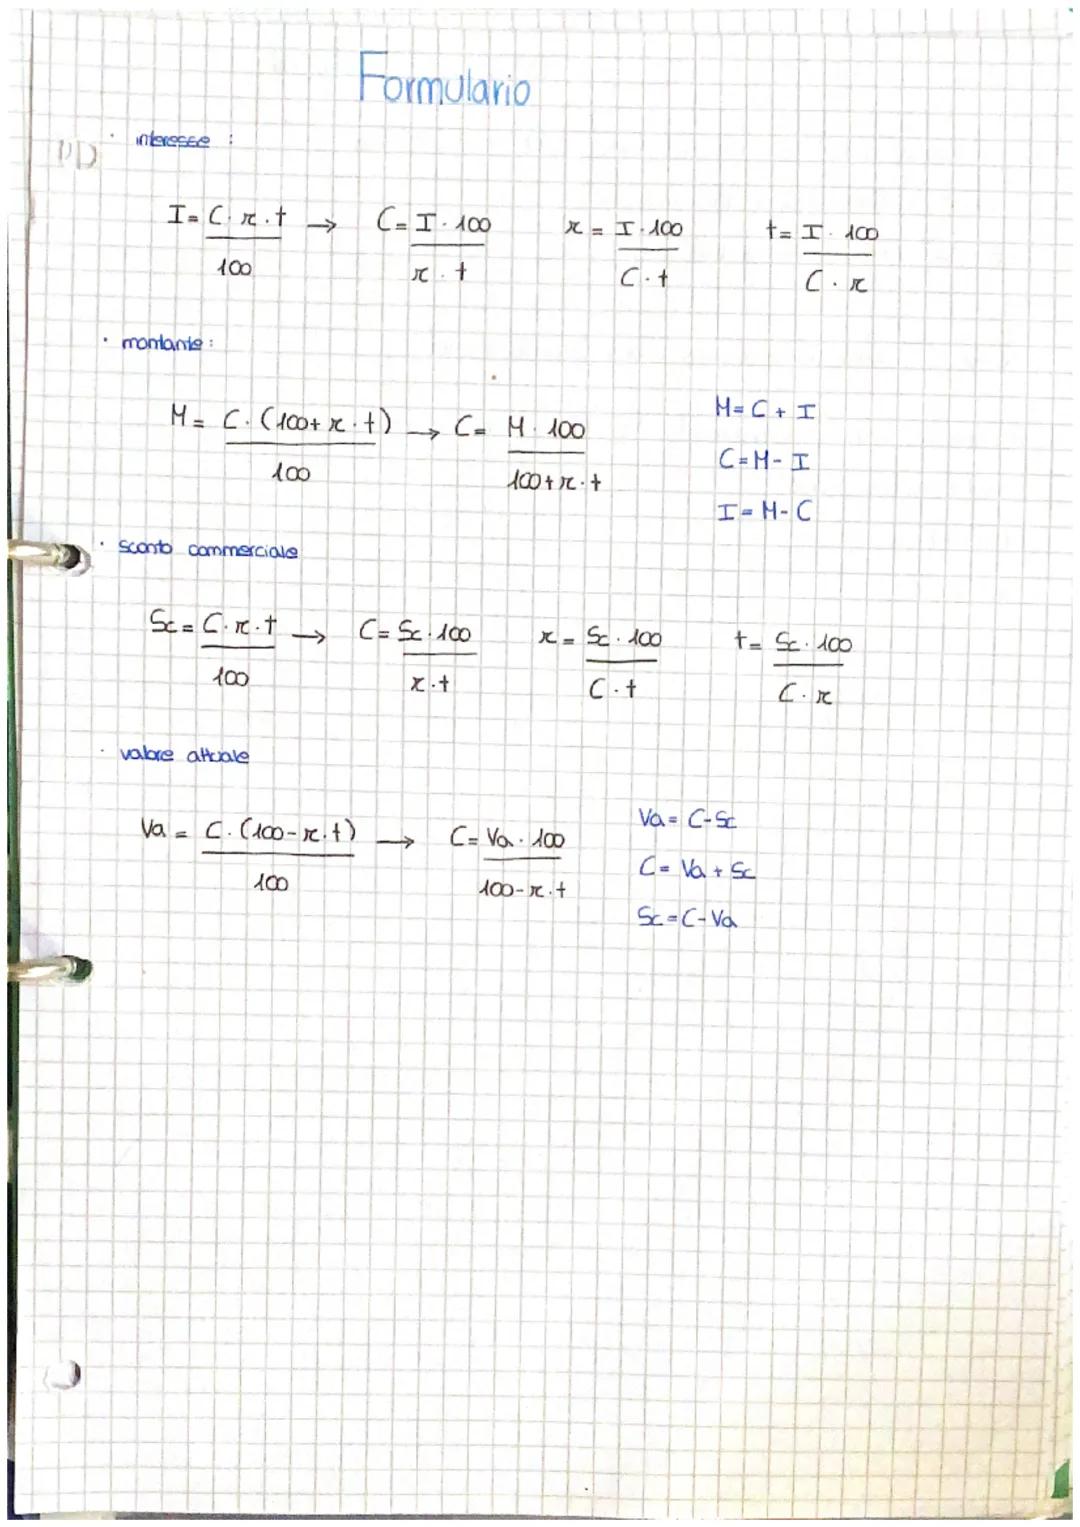 Formulario
· interesse :
I = C · r · t / 100 → C = I · 100 / r · t    r = I · 100 / C · t    t = I · 100 / C · r
· montante :
M = C · (100 + r · t) / 100 → C = M · 100 / 100 + r · t
M = C + I
C = M - I
I = M - C
· sconto commerciale
Sc = C · r · t / 100 → C = Sc · 100 / r · t    r = Sc · 100 / C · t    t = Sc · 100 / C · r
· valore attuale
Va = C · (100 - r · t) / 100 → C = Va · 100 / 100 - r · t
Va = C - Sc
C = Va + Sc
Sc = C - Va